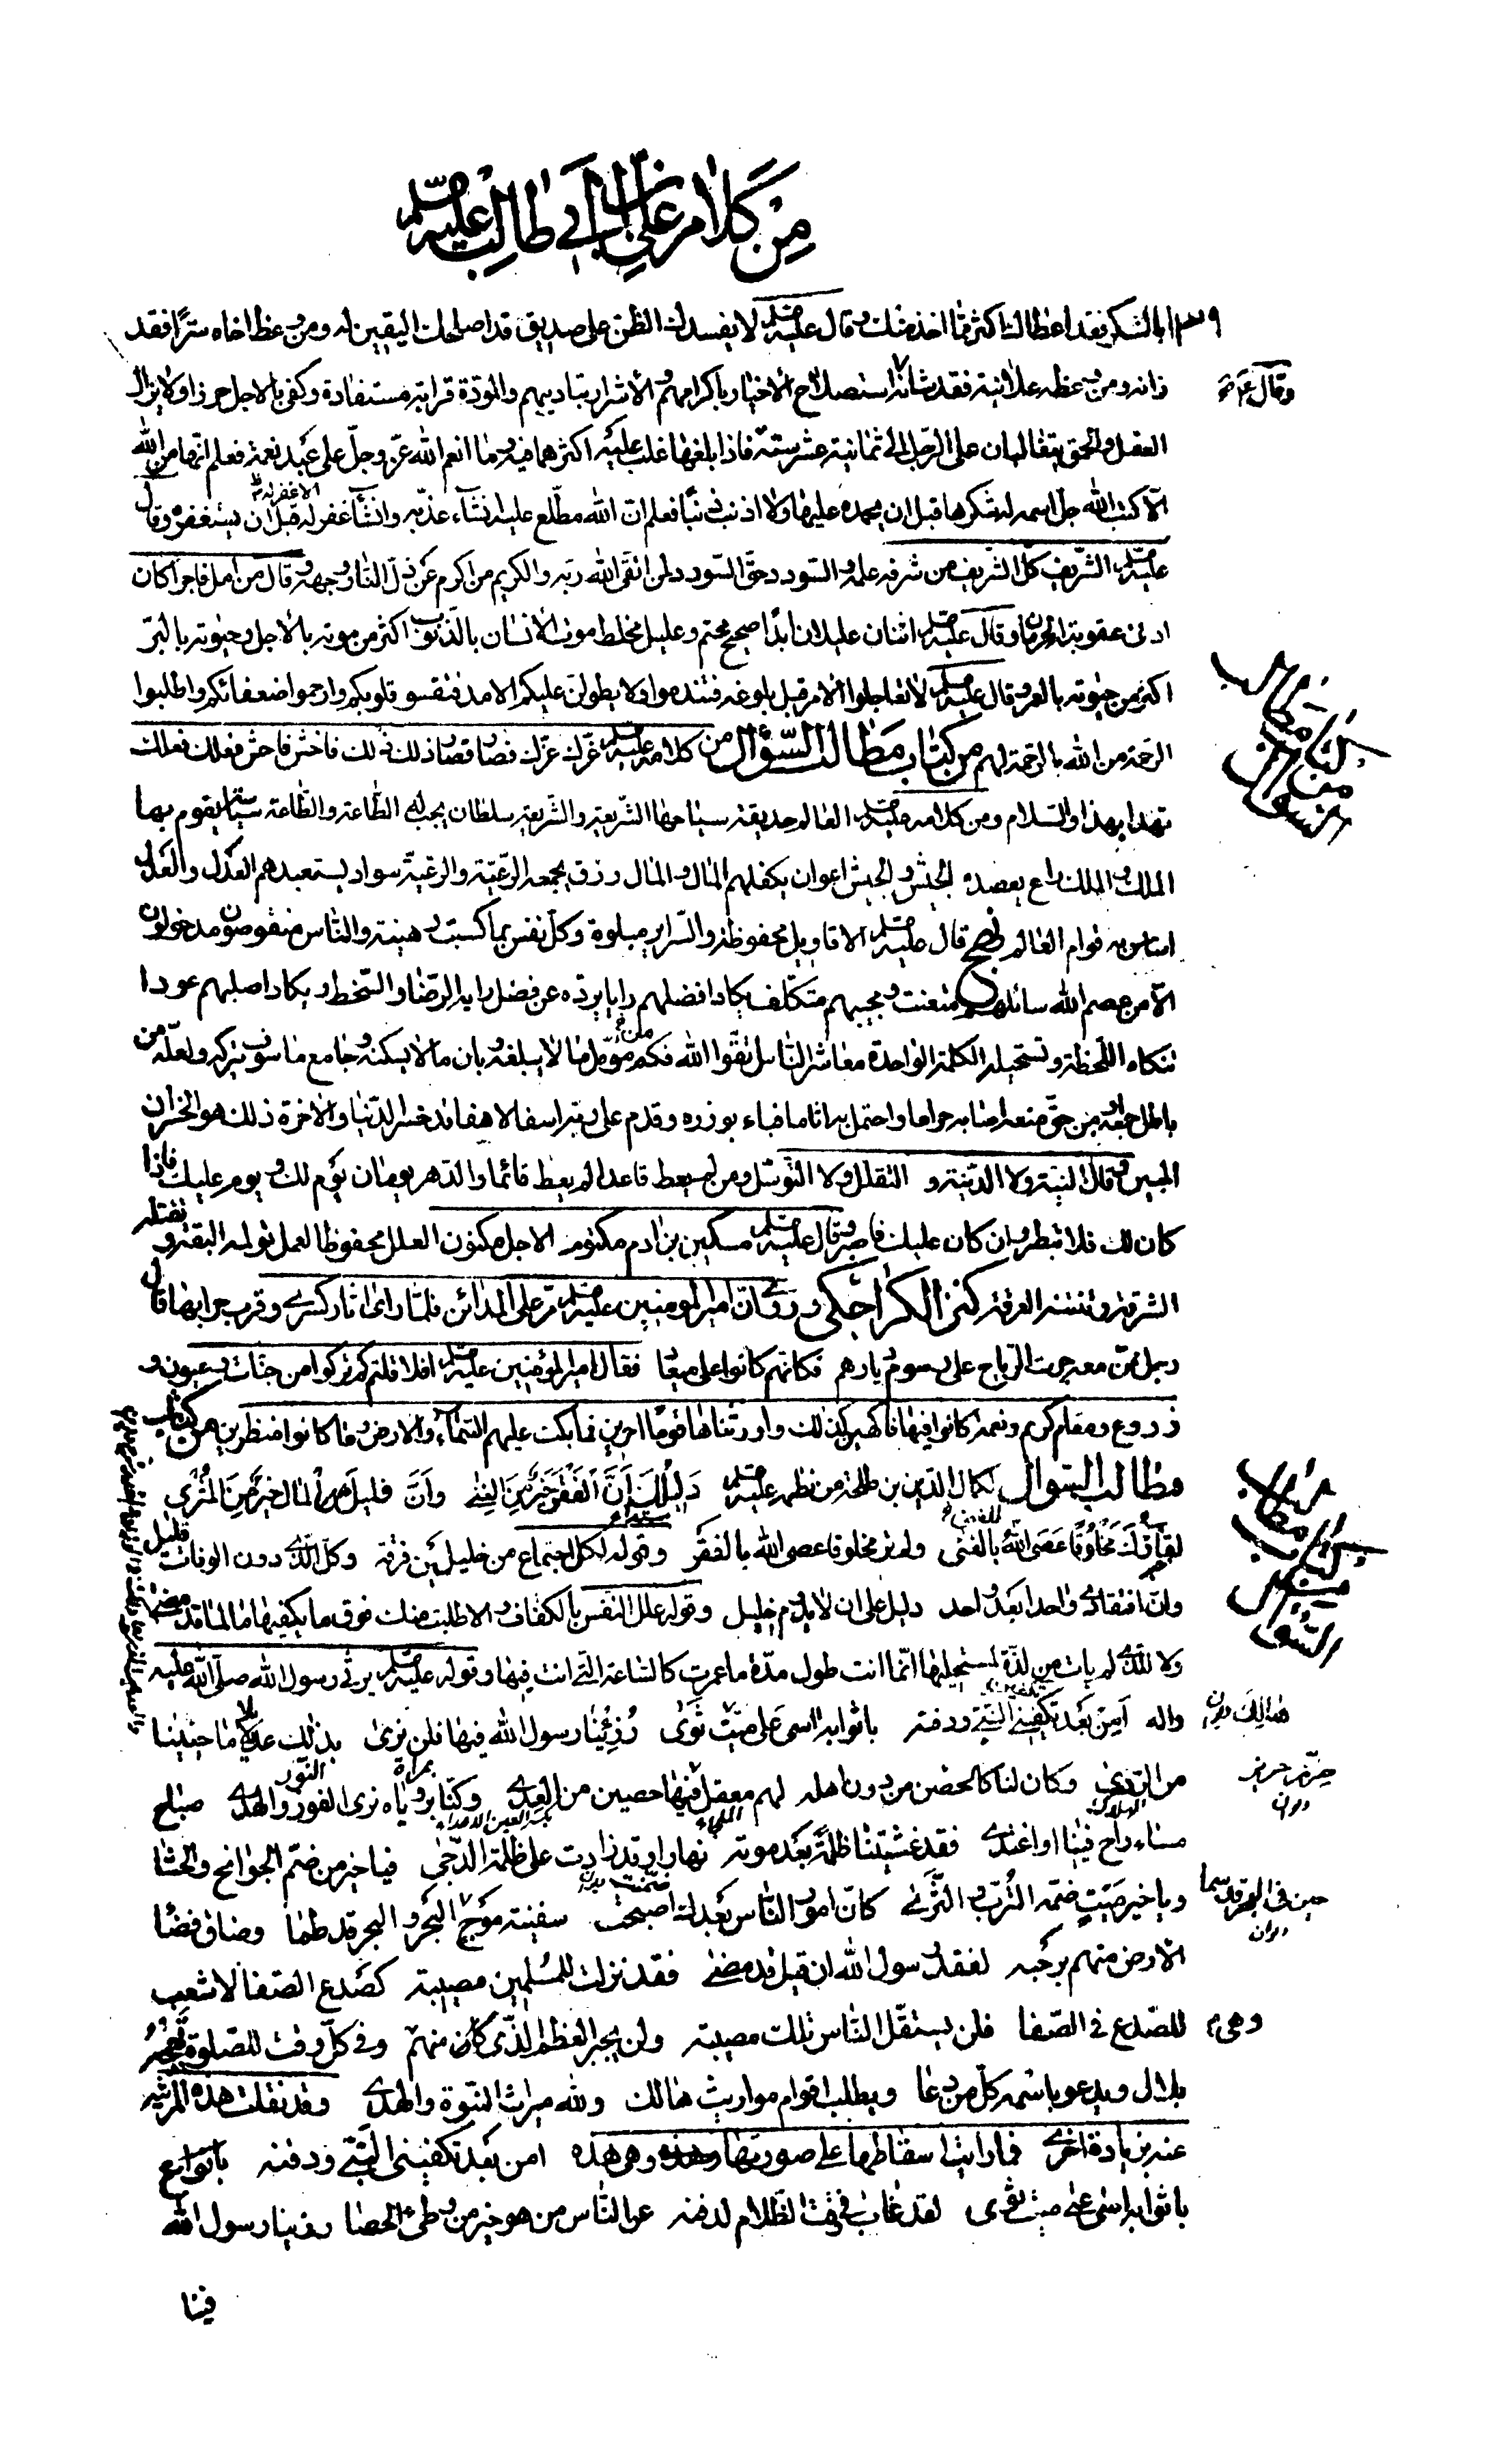 من كلام علي بن ابي طالب عليه سلم
بالشكر فقد اعطاك اكثر مما اخذ منك وقال عليه سلم لا يفسدك الظن على صديق قد اصلحك اليقين له ومن وعظ اخاه سترًا فقد
وقال عم
زانه ومن وعظه علانية فقد شانه استصلاح الاخيار باكرامهم والأشرار بتاديبهم والمودة قرابة مستفادة وكفى بالاجل حرزا ولا يزال
العقل والحمق يتغالبان على الرجل الى ثمانية عشر سنة فاذا بلغها غلب عليه اكثرهما فيه وما انعم الله عزّ وجلّ على عبد نعمة فعلم انّها من الله
الّا كتب الله جل اسمه له شكرها قبل ان يحمده عليها ولا اذنب ذنبًا فعلم ان الله مطّلع عليه ان شآء عذّبه وان شآء غفر له الا غفر له قبل ان يستغفره وقال
عليه سلم الشّريف كلّ الشّريف من شرفه علمه والسودد حقّ السودد لمن اتقى الله ربّه والكريم من اكرم عن ذلّ النار وجهه وقال من امل فاجرا كان
ادنى عقوبته الحرمان وقال عليه سلم اثنان عليلان ابدًا صحيح محتم وعليل مخلط موت الأنسان بالذنوب اكثر من موته بالأجل وحيوته بالبرّ
اكثر من حيوته بالعمر وقال عليه سلم لا تعاجلوا الأمر قبل بلوغه فتندموا ولا يطولنّ عليكم الامد فتقسو قلوبكم وارحموا ضعفائكم واطلبوا
الرحمة من الله بالرحمة لهم من كتاب مطالب السّؤال من كلامه عليه سلم غرّك عزّك فصار قصار ذلك ذلّك فاخش فاحش فعلك فعلّك
تهدا بهذا والسلام ومن كلامه عليه سلم العالم حديقة سياحها الشّريعة والشّريعة سلطان يجب له الطّاعة والطّاعة سياسة يقوم بها
الملك والملك راع يعضده الجيش والجيش اعوان يكفلهم المال والمال رزق يجمعه الرّعيّة والرعيّة سواد يستعبدهم العدل والعدل
اساس به قوام العالم نهج قال عليه سلم الاقاويل محفوظة والسّراير مبلوة وكلّ نفس بما كسبت رهينة والنّاس منقوصون مدخولون
الّا من عصم الله سائلهم متعنت ومجيبهم متكلّف يكاد افضلهم رايا يردّه عن فضل رايه الرّضا والسّخط ويكاد اصلبهم عودا
تنكاه اللّحظة وتستحيله الكلمة الواحدة معاشر النّاس اتقّوا الله فكم من مؤمّل ما لا يبلغه وبان ما لا يسكنه وجامع ما سوف يتركه ولعلّه من
باطل جمعه ومن حقّ منعه اصابه حراما واحتمل به اثاما فباء بوزره وقدم على ربّه اسفا لاهفا قد خسر الدّنيا والاخرة ذلك هو الخسران
المبين وقال المنيّة ولا الدّنيّة والتقلل ولا التوسّل ومن لم يعط قاعدا لم يعط قائما والدّهر يومان يوم لك ويوم عليك فاذا
كان لك فلا تبطر وان كان عليك فاصبر وقال عليه سلم مسكين بن ادم مكتوم الاجل مكنون العلل محفوظ العمل تؤلمه البقّة وتقتله
الشرقة وتنتنه العرقة كنز الكراجكي وروى انّ امير المومنين عليه سلم مرّ على المدائن فلمّا راى اثار كسرى وقرب خرابها قال
رجل ممّن معه جرت الرّياح على رسوم ديارهم فكانّهم كانوا على ميعاد فقال امير المؤمنين عليه سلم افلا قلتم كم تركوا من جنّات وعيون و
زروع ومقام كريم ونعمة كانوا فيها فاكهين كذلك واورثناها قومًا اخرين فما بكت عليهم السّماء والارض وما كانوا منظرين من كتاب
مطالب السؤال لكمال الدّين بن طلحة من نظمه عليه سلم دَليلُكَ اَنَّ الفَقْرَ خَيْرٌ مِنَ الغِنى وَاَنَّ قليلَ المال خيرٌ مِنَ المُثْرى
لِقاؤكَ مَخْلُوقًا عَصَى اللهَ بالغنى ولم تر مخلوقا عصى الله بالفقر وقوله لكل اجتماع من خليلين فرقة وكلّ الذى دون الوفات قليل
وانّ افتقادى واحدا بعد واحد دليل على ان لا يدوم خليل وقوله علل النّفس بالكفاف والا طلبت منك فوق ما يكفيها ما لما قد مضى
ولا للذى لم يات من لذّة لمستحليها انّما انت طول مدّة ما عمرت كالسّاعة الّتى انت فيها وقوله عليه سلم يرثى رسول الله صلّى الله عليه
واله اَمِنْ بَعد تكفينى النّبىّ ودفنه باثوابه اسى على ميّت ثَوى رُزِئْنا رسول الله فينا فلن نرى بذلك عديلا ما حيينا
من الرّدى وكان لنا كالحصن من دون اهله لهم معقل فيها حصين من العِدى وكنّا برؤياه نرى النّور والهدى صباح
مساء راح فينا او اغتدى فقد غشيتنا ظلمة بعد موته نهارا وقد زادت على ظلمة الدّجى فيا خير من ضمّ الجوانح والحشا
ويا خير مَيّتٍ ضمّه التُّرب والثّرى كانّ امور النّاس بعدك ضمّنت سفينة موج البحر والبحر قد طما وضاق فضا
الارض منهم برحبه لفقد رسول الله ان قيل قد مضى فقد نزلت للمسلمين مصيبة كصَدع الصّفا لا شعب
للصّدع فى الصّفا فلن يستقلّ النّاس تلك مصيبة ولن يجبر العظم الّذى منهم وهى وفى كلّ وقت للصّلوة يُهيجه
بلال ويدعو باسمه كلّ من دعا ويطلب اقوام مواريث هالك ولله ميراث النّبوّة والهدى وقد نقلت هذه المرثية
عنه بزيادة اخرى فما رايت اسقاطها على صورتها وهى هذه امن بَعد تكفينى النّبىّ ودفنه
باثوابه اسى على ميت ثوى لقد غاب فى وقت الظّلام لدفنه عن النّاس من هو خير من وطى الحصا رزينا رسول الله
فينا
كتاب مطالب السؤال
من كتاب مطالب السّؤل